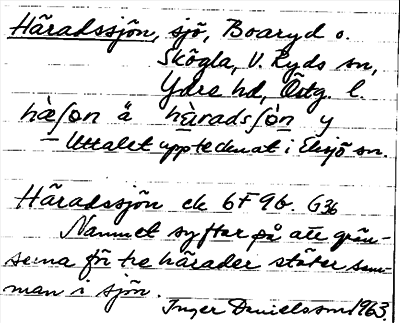 Häradssjön, sjö, Boaryd o.
Skögla, V. Ryds sn,
Ydre hd, Östg. l.
hæ̀ʃon ä hæ̀radsʃön y
— Uttalet upptecknat i Eksjö sn.
Häradssjön ek 6F 9b G36
Namnet syftar på att grän-
serna för tre härader stöter sam-
man i sjön.
Inger Danielsson 1963.